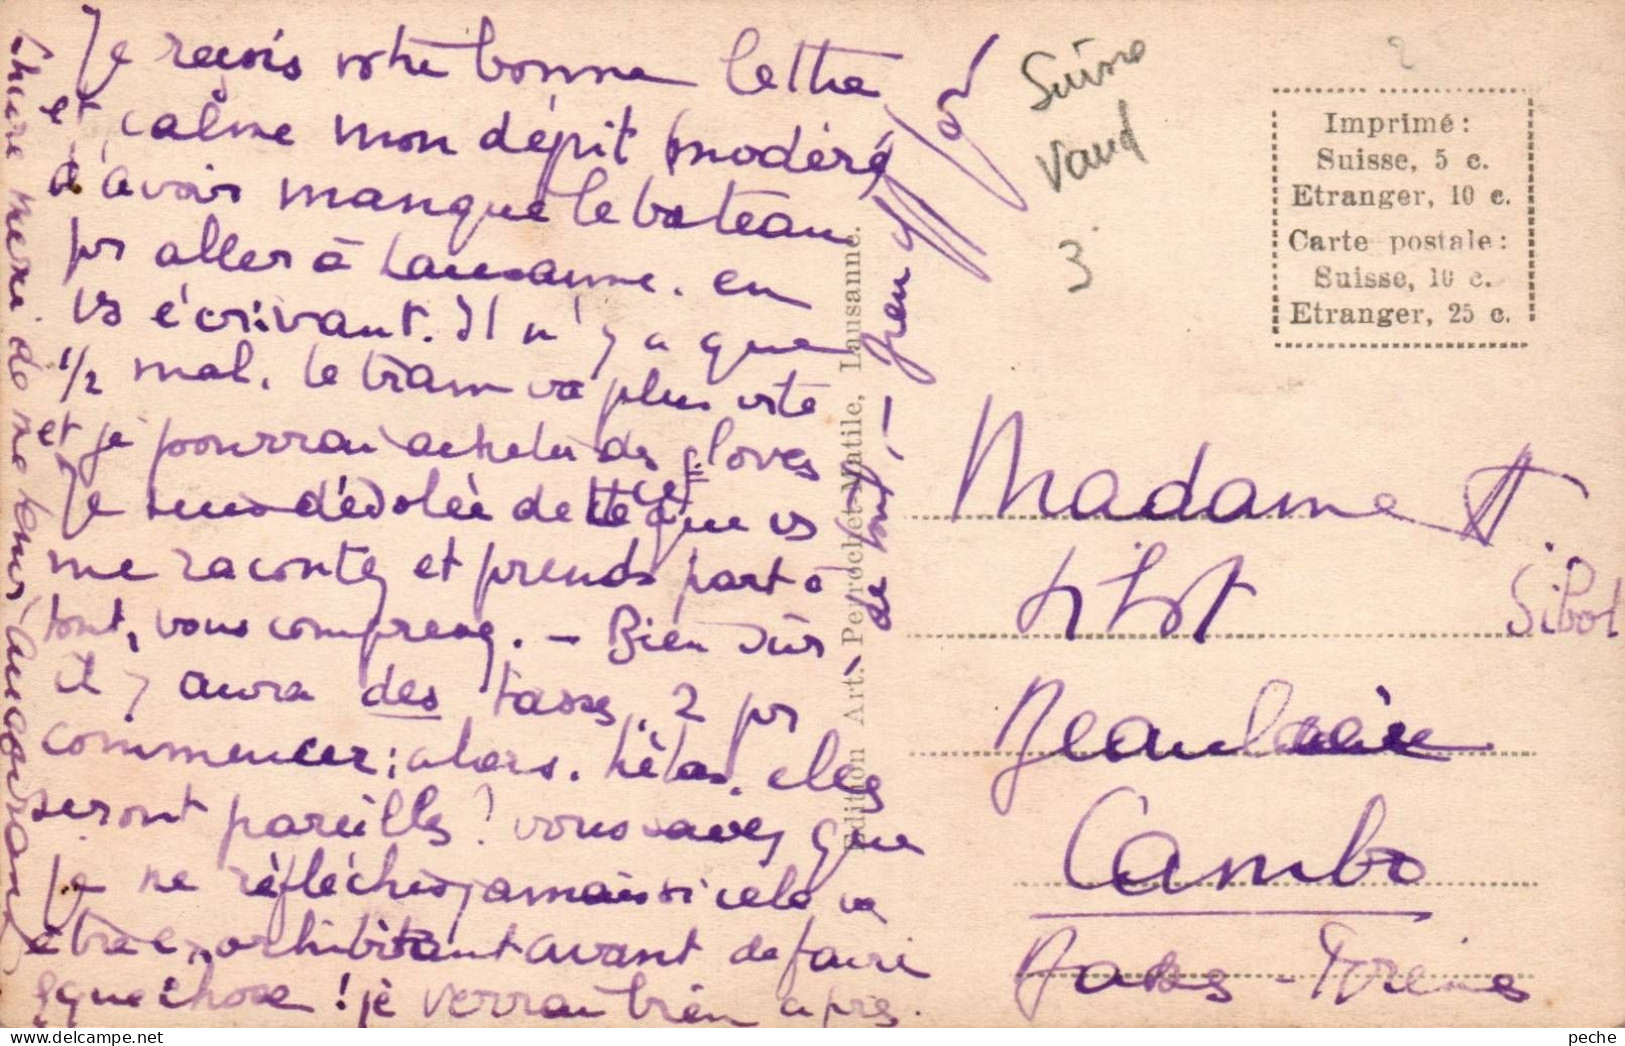 Je reçois votre bonne lettre
et calme mon dépit (modéré)
d'avoir manqué le bateau
pr allér à Lausanne. en
vs écrivant. Il n'y a que
1/2 mal. le tram va plus vite
et je pourrai acheter des gloves
Je suis désolée de tt ce que vs
me racontez et prends part à
tout, vous comprenez. — Bien sûr
il y aura des tasses. 2 pr
commencer; alors. hélas. elles
seront pareilles! vous savez que
Je ne réfléchis jamais si cela va
être exorbitant avant de faire
qquechose! je verrai bien après.
de tout!
Suisse
Vaud
3
Imprimé:
Suisse, 5 c.
Etranger, 10 c.
Carte postale:
Suisse, 10 c.
Etranger, 25 c.
Edition Art. Perrochet-Matile, Lausanne.
Madame H
Sibot
Sibot
Beaulieu
Cambo
Basses-Pyrénées
peche